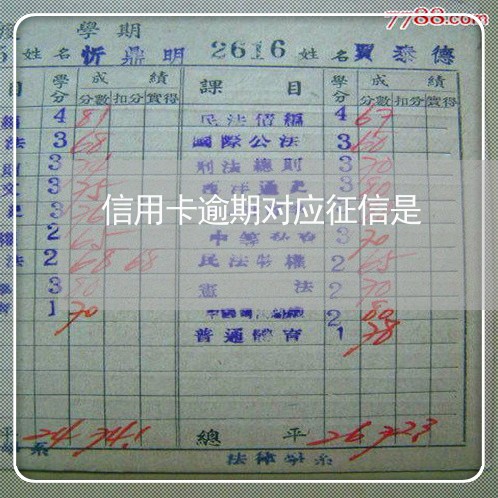 7788.com
學期
姓名 忻鼎明 2616 姓名 賈泰德
目 學分 成績 課目 學分 成績
分數 扣分 實得 分數 扣分 實得
4 81 民法債編 4 67
法 3 68 國際公法 3 60
3 刑法總則 3 70
3 75 西洋通史 3 80
信用卡逾期对应征信是
2 65 3 70
法 2 68 68 民法物權 2 65
3 80 憲法 2 70
1 70 2 80
普通體育 1 78
平 24 74.1 總平 26 72.3
系 法律學系